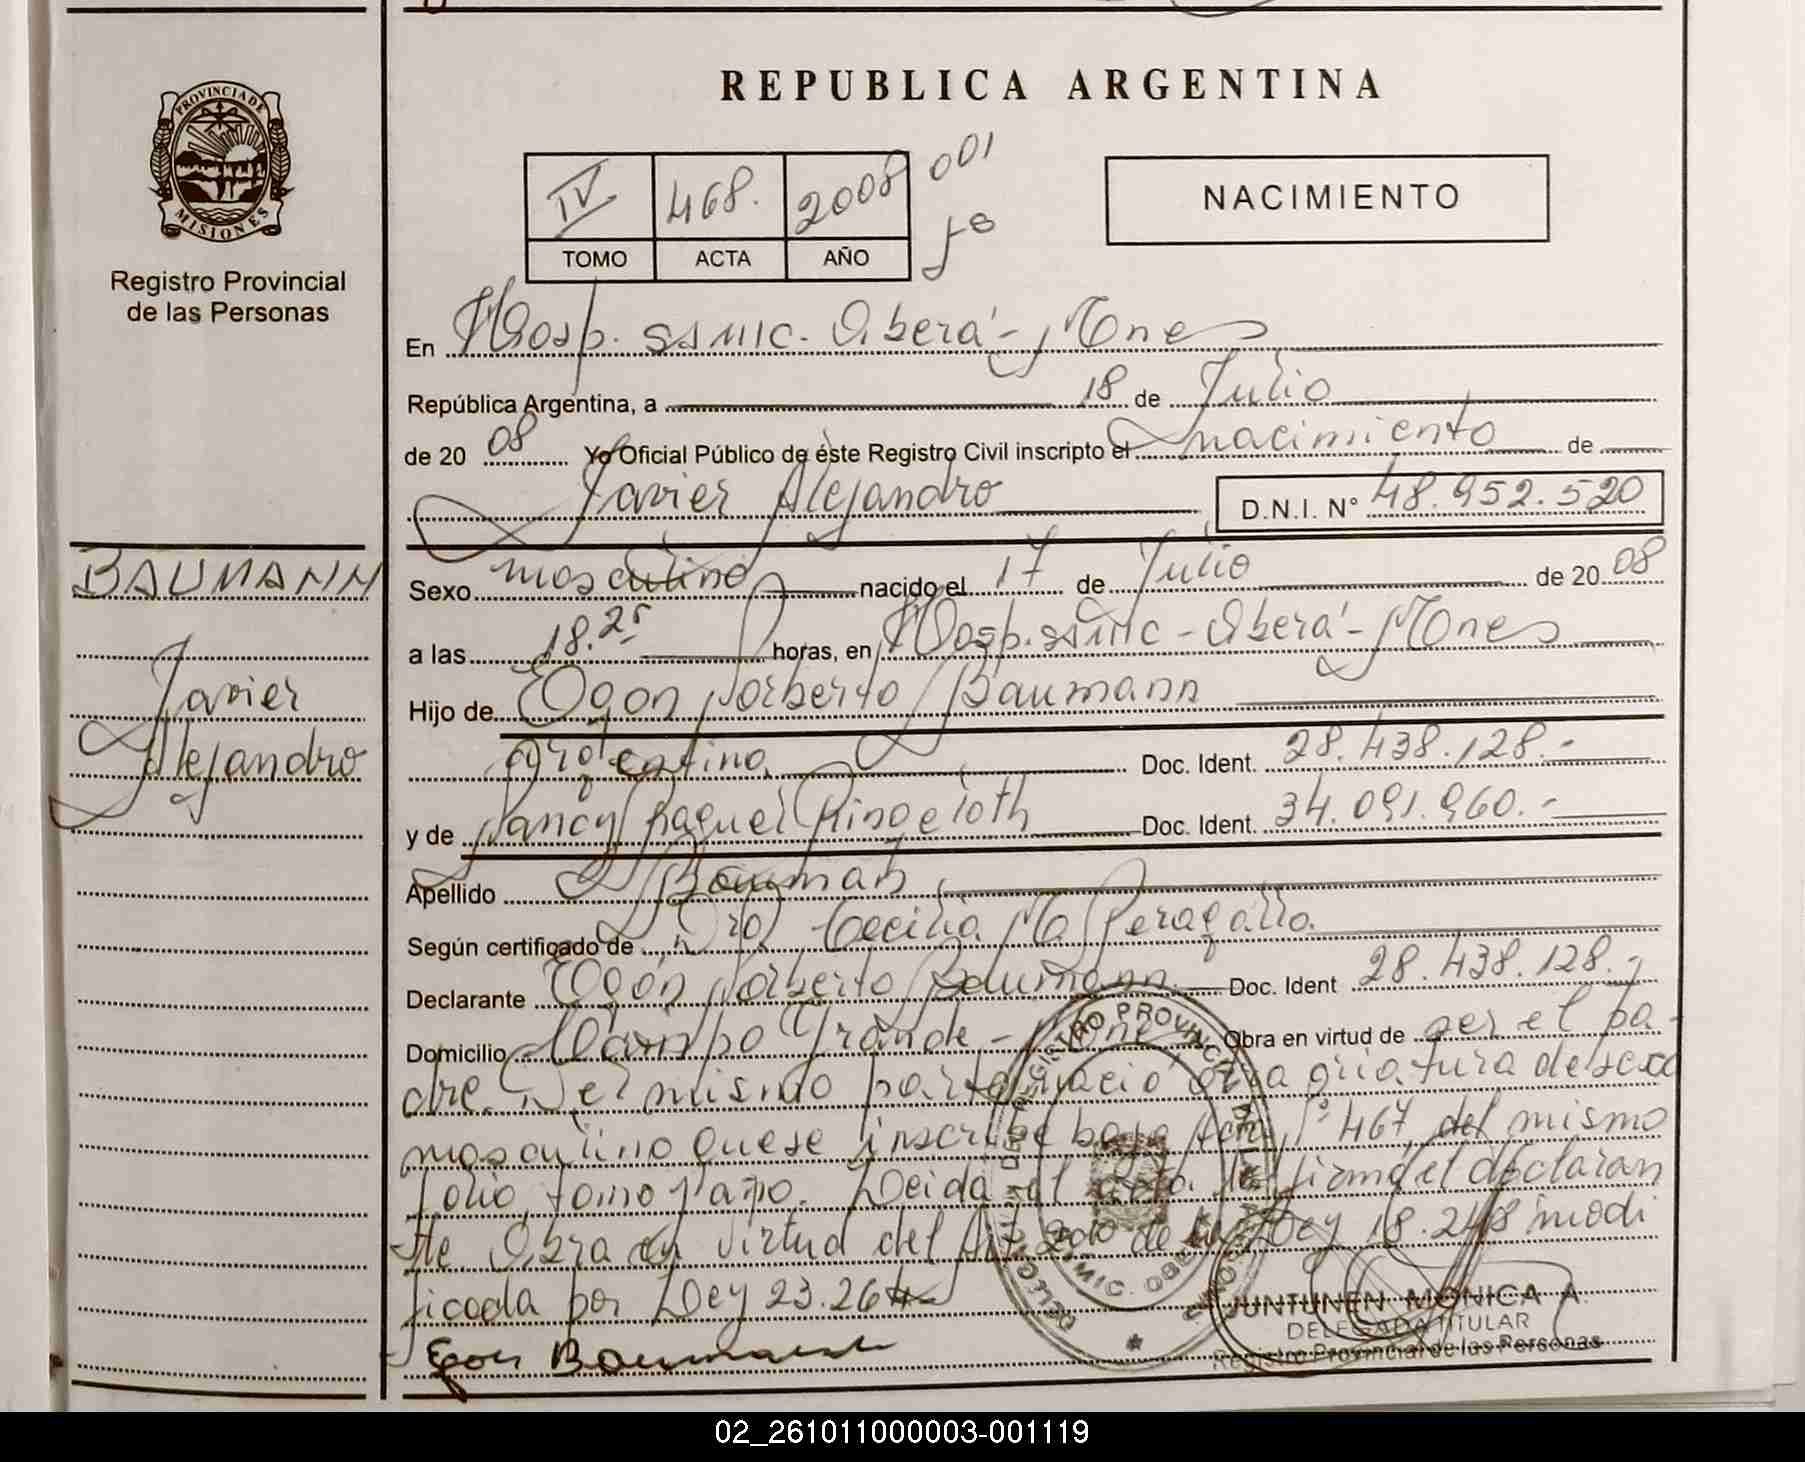 REPUBLICA ARGENTINA
PROVINCIA DE MISIONES
Registro Provincial
de las Personas
IV 468. 2008 001
TOMO ACTA AÑO Fº
NACIMIENTO
En Hosp. SSMIC. Oberá - Mones
República Argentina, a 18 de Julio
de 2008 Yo Oficial Público de éste Registro Civil inscripto el nacimiento de
Javier Alejandro D.N.I. N° 48.952.520
BAUMANN
Javier
Alejandro
Sexo masculino nacido el 17 de Julio de 2008
a las 18.25 horas, en Hosp. SSMIC - Oberá - Mones
Hijo de Egon Norberto Baumann
argentino Doc. Ident. 28.438.128.-
y de Nancy Raquel Ringeloth Doc. Ident. 34.091.960.-
Apellido Baumann
Según certificado de Dra Cecilia M Peragallo.
Declarante Egon Norberto Baumann Doc. Ident 28.438.128.-
Domicilio Campo Grande - Mones Obra en virtud de ser el pa-
dre. Del mismo parto nació otra criatura de sexo
masculino que se inscribe bajo Acta Nº 467, del mismo
folio, tomo y año. Leida el acta la firma el declaran
te Obra en virtud del Art 2do de la Ley 18.248 modi
ficada por Ley 23.264
Egon Baumann
JUNTUNEN MONICA A.
DELEGADA TITULAR
Registro Provincial de las Personas
02_261011000003-001119